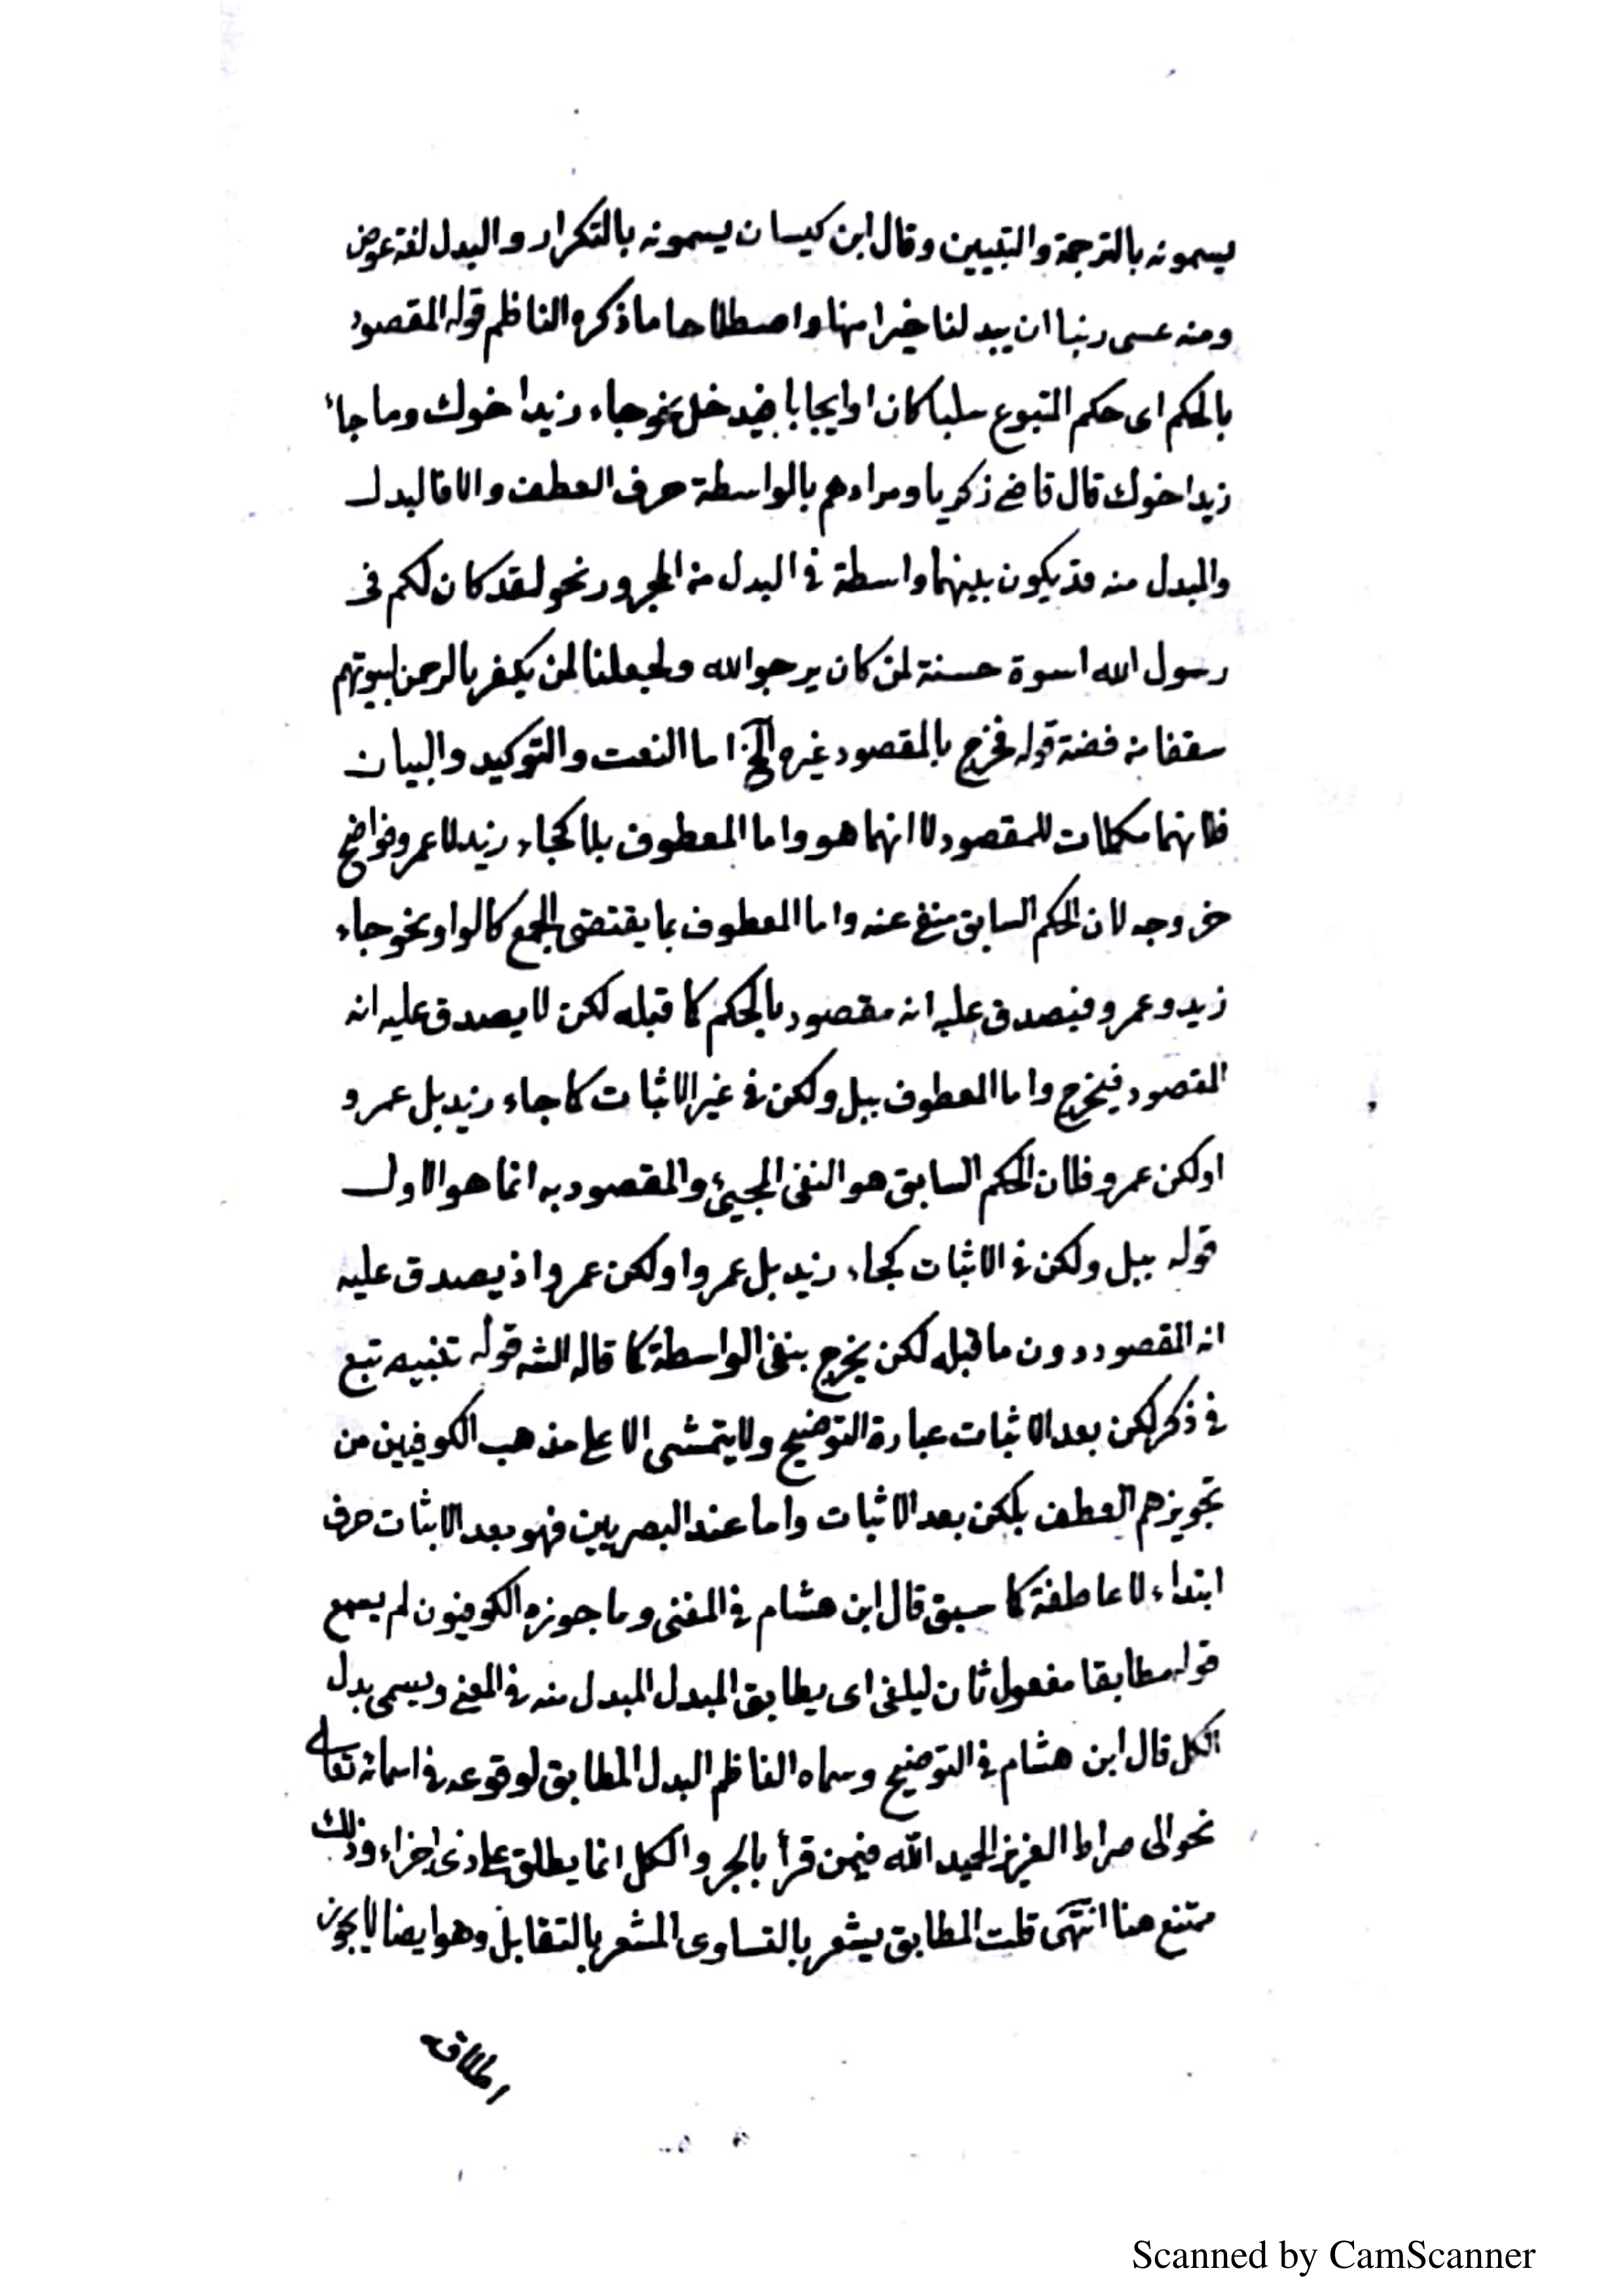 يسمونه بالترجمة والتبيين وقال ابن كيسان يسمونه بالتكرار والبدل لغة عوض
ومنه عسى ربنا ان يبدلنا خيرا منها واصطلاحا ما ذكره الناظم قوله المقصود
بالحكم اى حكم المتبوع سلبا كان او ايجابا فيدخل نحو جاء زيد اخوك وما جاء
زيد اخوك قال قاضى زكريا ومرادهم بالواسطة حرف العطف والا فالبدل
والمبدل منه قد يكون بينهما واسطة فى البدل من المجرور نحو لقد كان لكم فى
رسول الله اسوة حسنة لمن كان يرجو الله ولجعلنا لمن يكفر بالرحمن لبيوتهم
سقفا من فضة قوله فخرج بالمقصود غيره الخ اما النعت والتوكيد والبيان
فلانهما مكملات للمقصود لا انهما هو واما المعطوف بلا كجاء زيد لا عمرو فواضح
خروجه لان الحكم السابق منفى عنه واما المعطوف بما يقتضى الجمع كالواو نحو جاء
زيد وعمرو فيصدق عليه انه مقصود بالحكم كما قبله لكن لا يصدق عليه انه
المقصود فيخرج واما المعطوف ببل ولكن فى غير الاثبات كما جاء زيد بل عمرو
او لكن عمرو فلان الحكم السابق هو النفى المجيئ والمقصود به انما هو الاول
قوله ببل ولكن فى الاثبات كجاء زيد بل عمرو او لكن عمرو اذ يصدق عليه
انه المقصود دون ما قبله لكن يخرج بنفى الواسطة كما قاله الشه قوله تنبيه تبع
فى ذكر لكن بعد الاثبات عبارة التوضيح ولا يتمشى الا على مذهب الكوفيين من
تجويزهم العطف بلكن بعد الاثبات واما عند البصريين فهو بعد الاثبات حرف
ابتداء لا عاطفة كما سبق قال ابن هشام فى المغنى وما جوزه الكوفيون لم يسمع
قوله مطابقا مفعول ثان ليلفى اى يطابق المبدل المبدل منه فى المعنى ويسمى بدل
الكل قال ابن هشام فى التوضيح وسماه الناظم البدل المطابق لوقوعه فى اسمائه تعالى
نحو الى صراط العزيز الحميد الله فيمن قرأ بالجر والكل انما يطلق على ذى اجزاء وذلك
ممتنع هنا انتهى قلت المطابق يشعر بالتساوى المشعر بالتقابل وهو ايضا لا يجوز
اطلاقه
Scanned by CamScanner